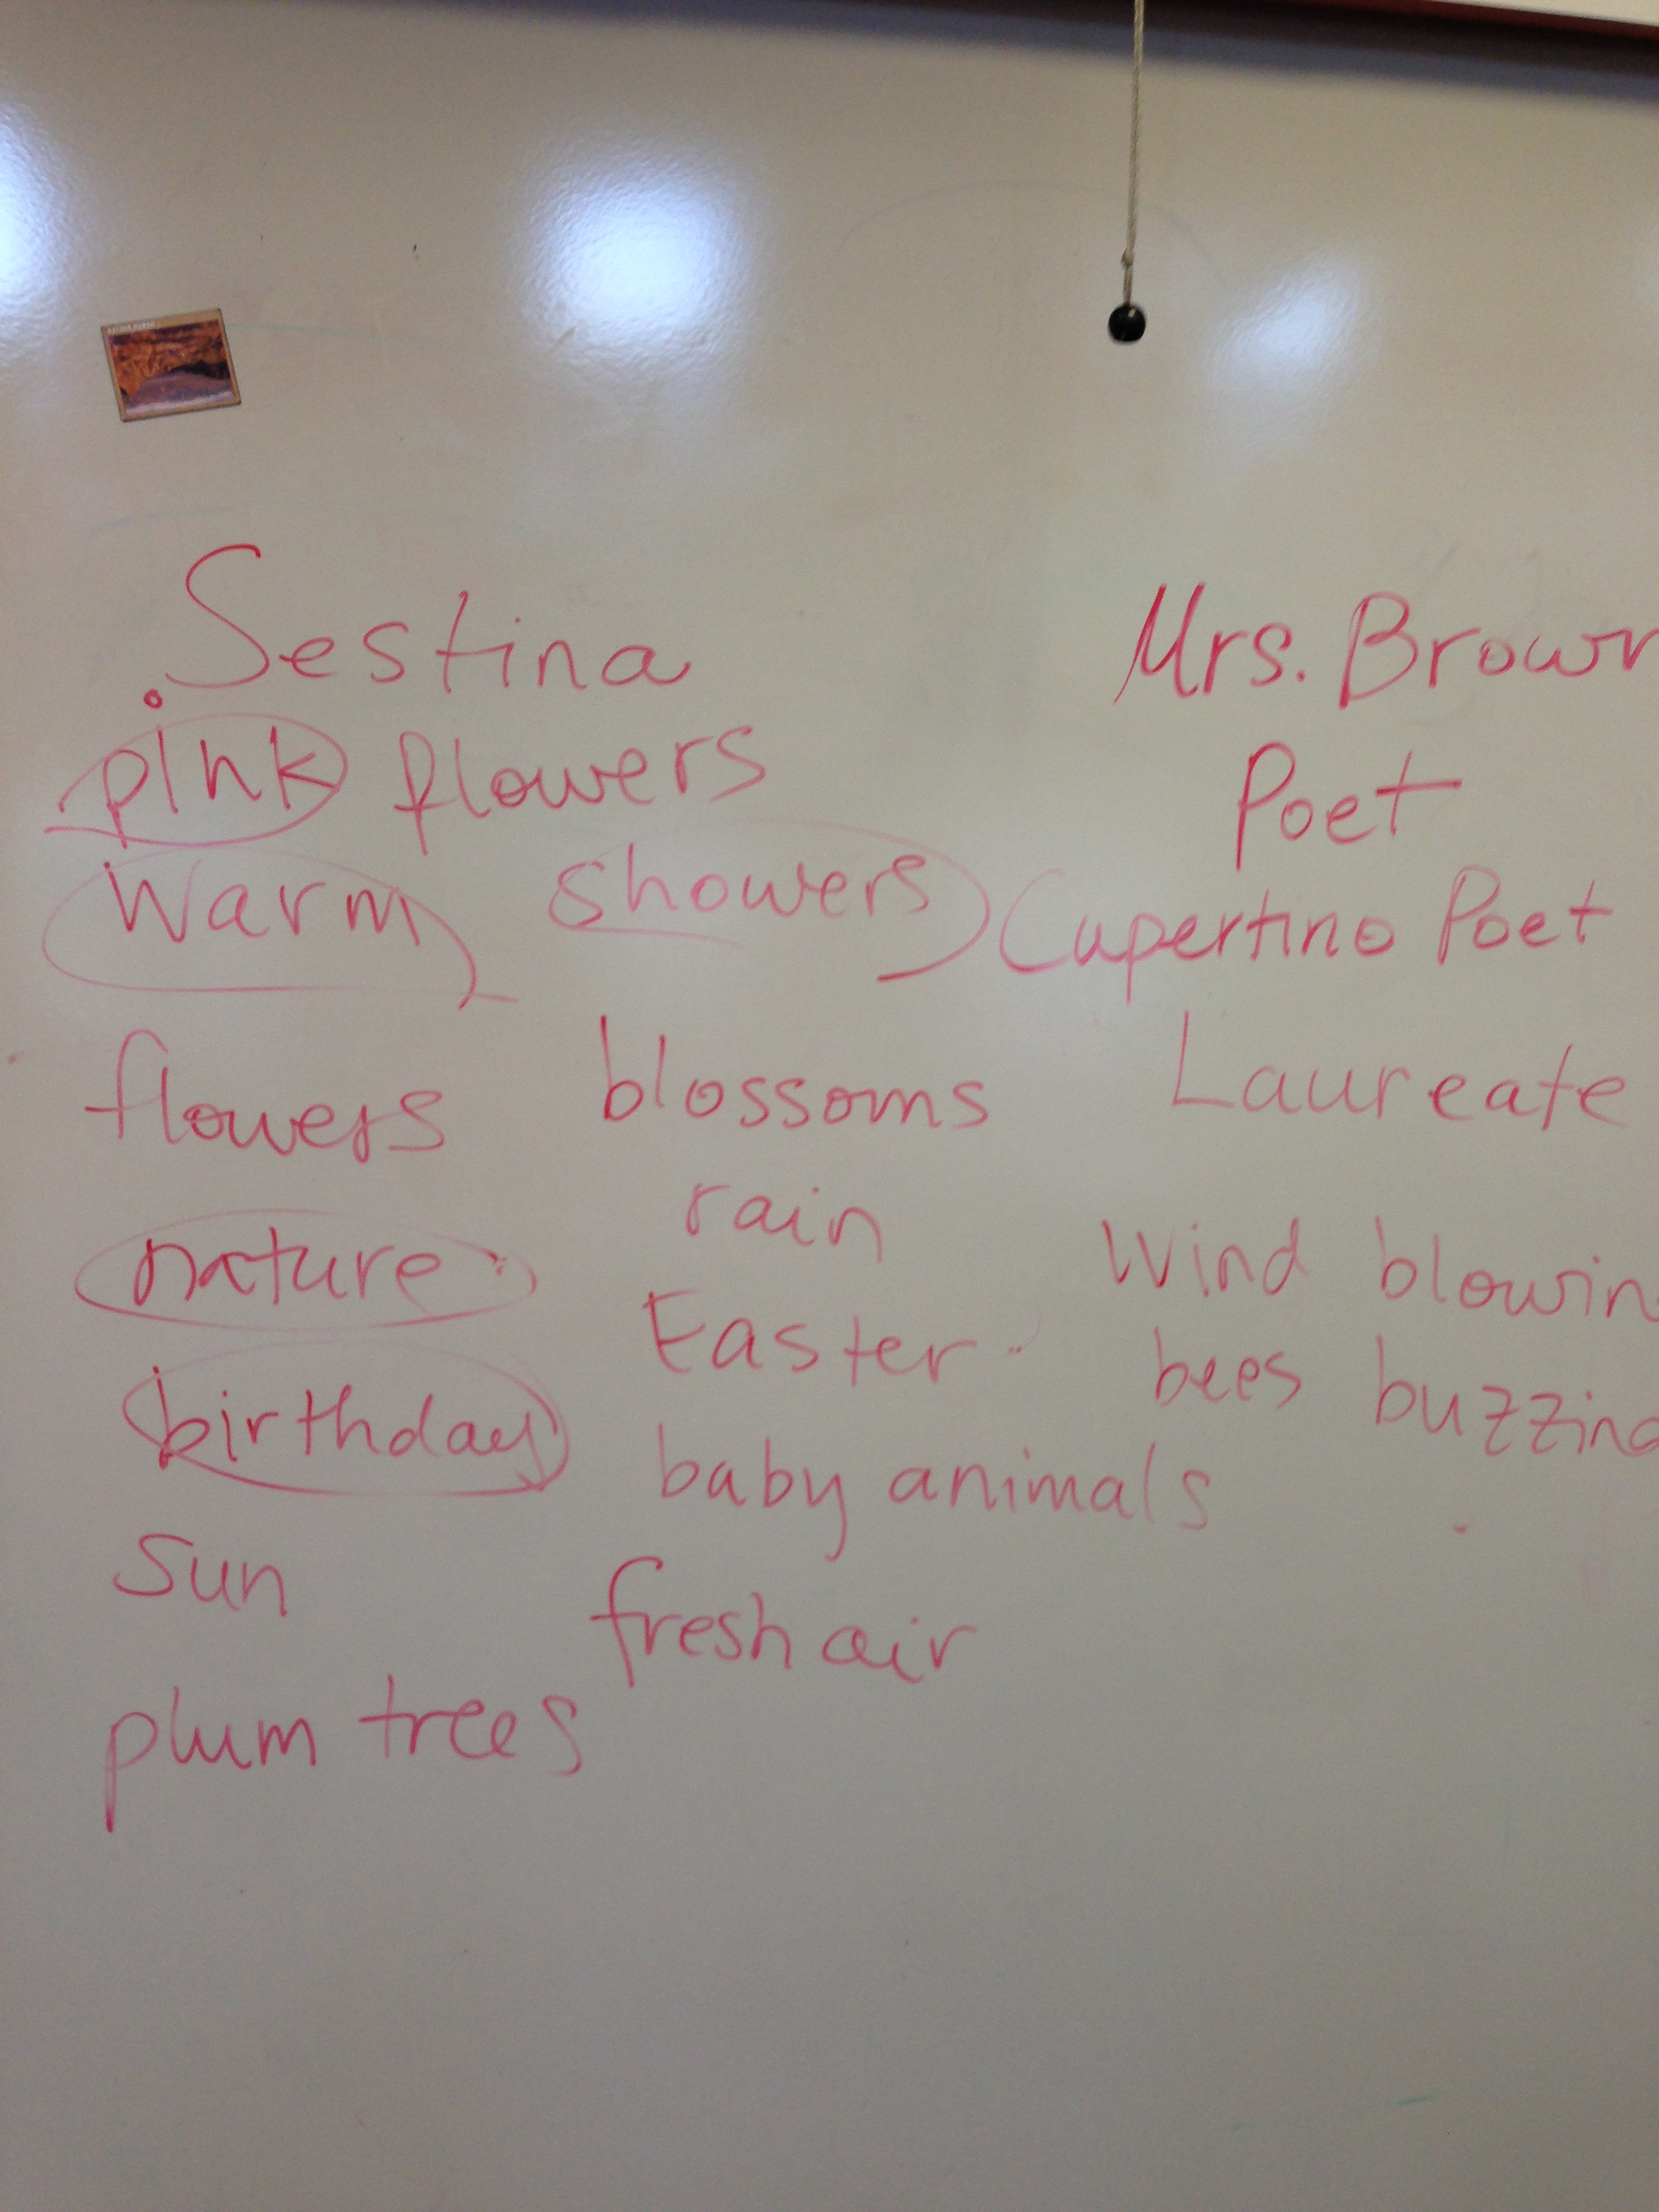 Sestina
pink flowers
warm showers
flowers blossoms
nature
birthday
sun
plum trees
rain
Easter
baby animals
fresh air
Mrs. Brown
Poet
Cupertino Poet
Laureate
Wind blowin
bees buzzing